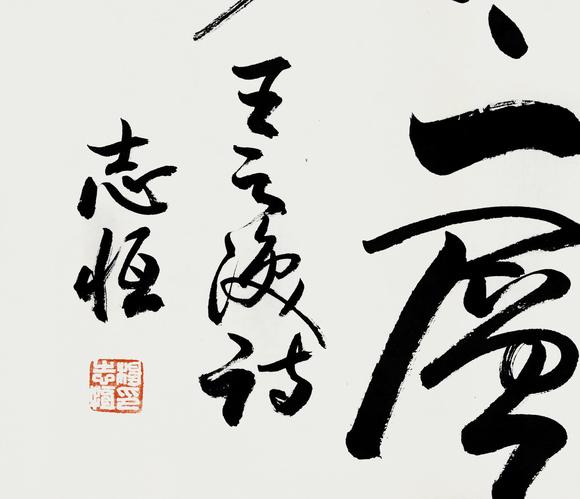 一層
王之渙詩
志恒